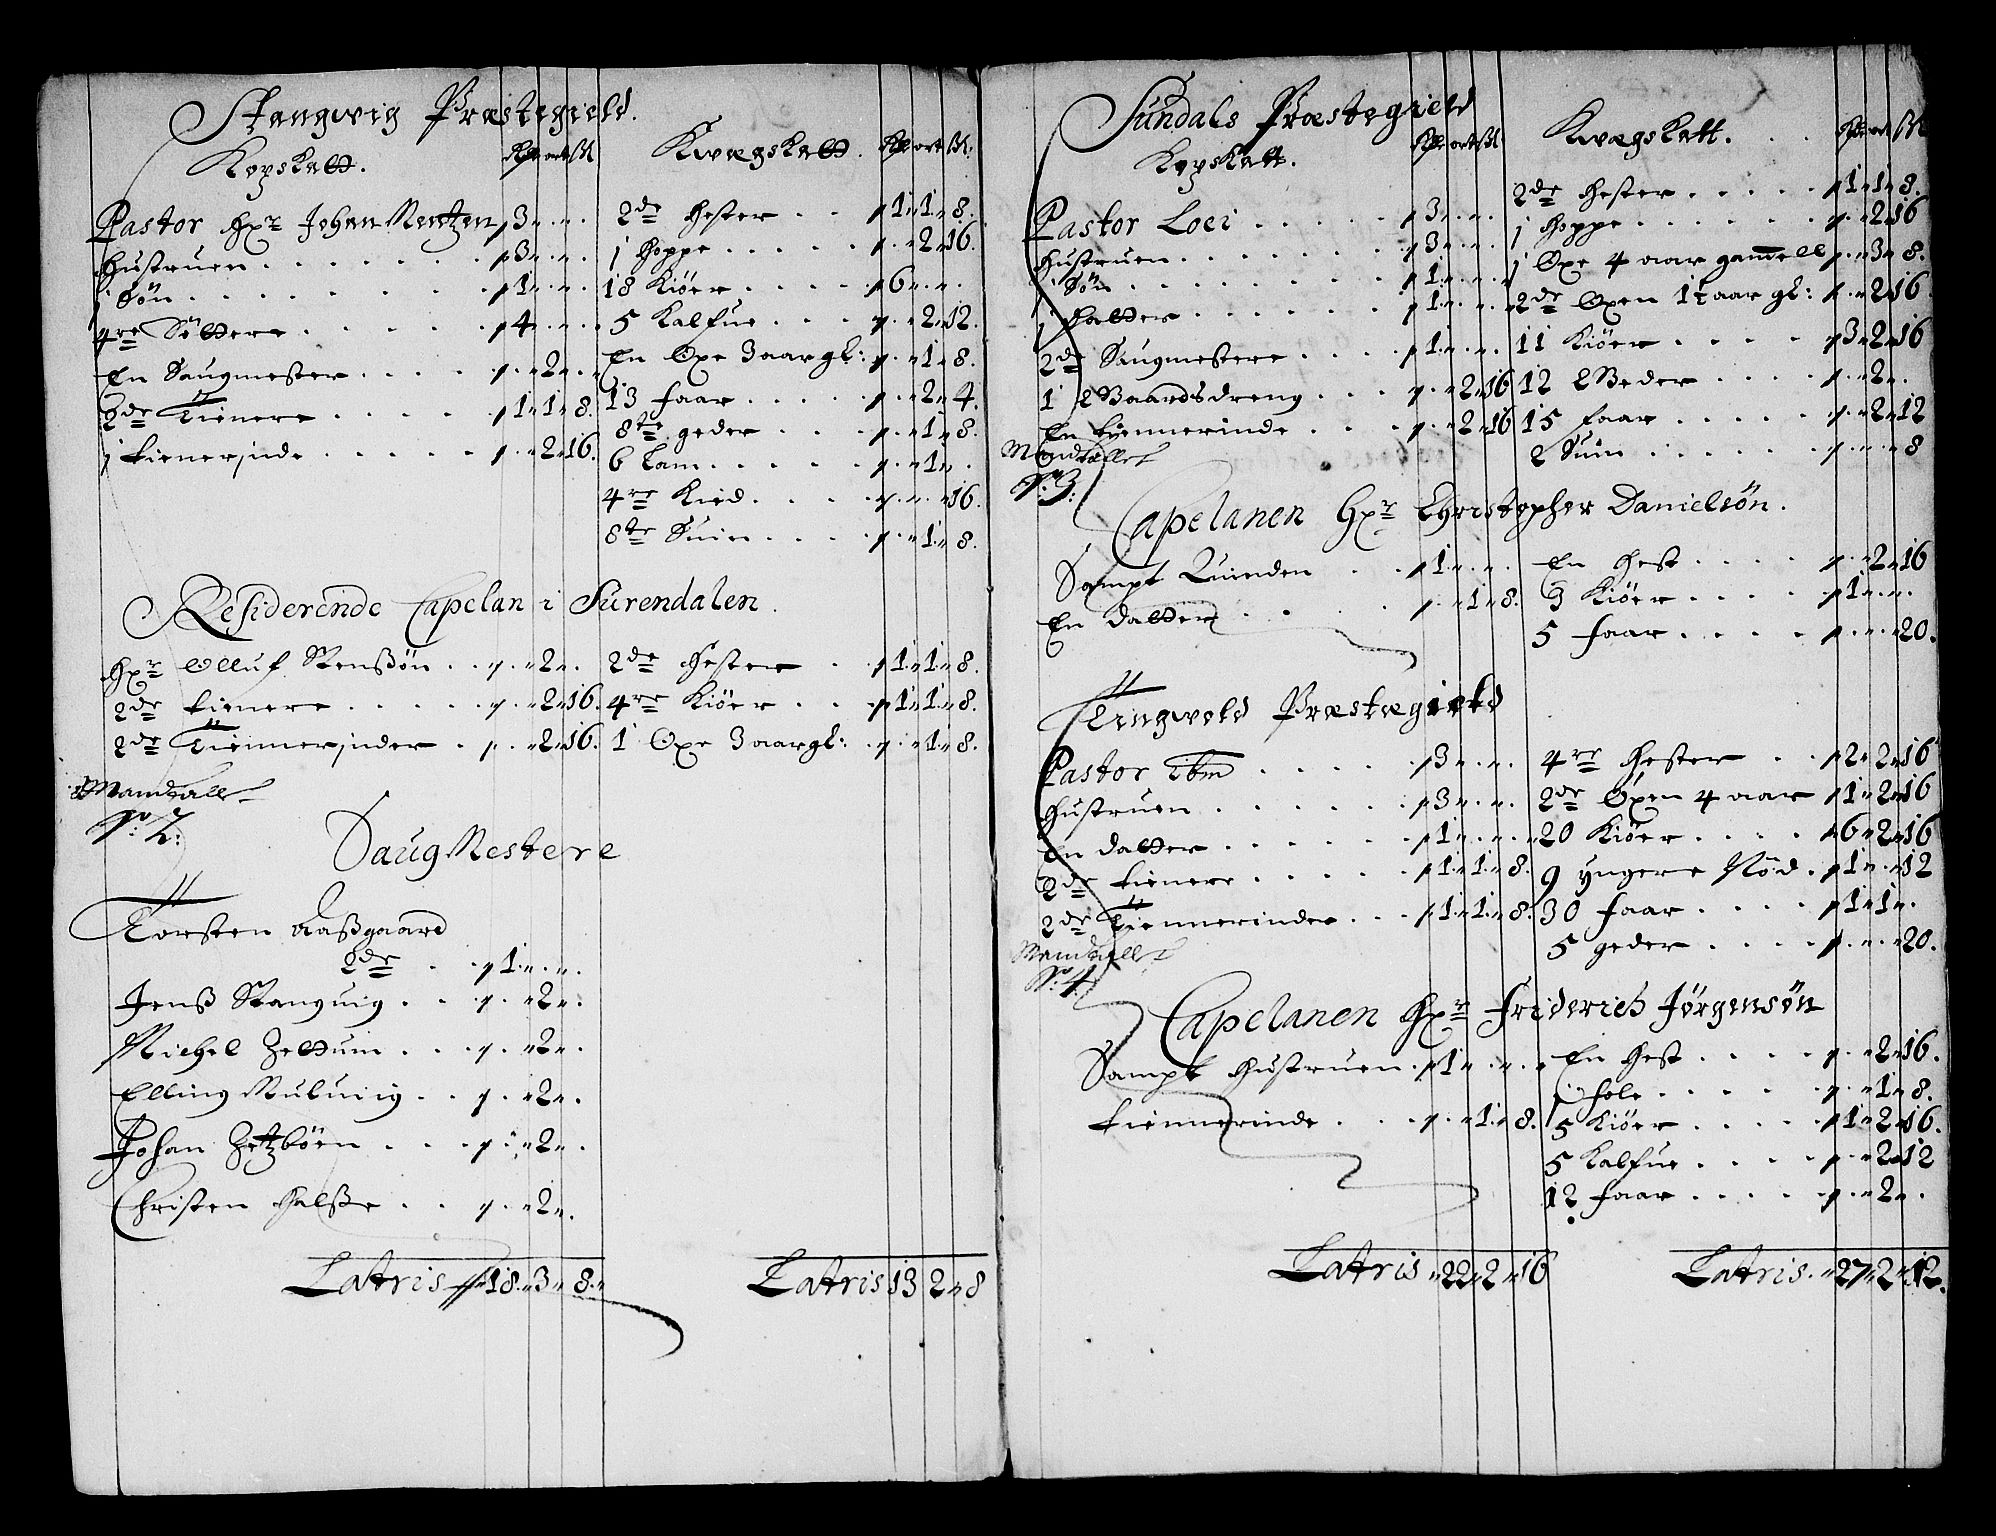 Stangwig Præstegield.
Kopskatt. Rdr ort ß
Pastor Hr: Johan Mentzen 3 „ „
Hustruen . . . 3 „ „
1 Søn . . . 1 „ „
4re Döttere . . . 4 „ „
En Saugmester . . . „ 2 „
2de Tienere . . . 1 „ 1 „ 8.
1 tienerinde . . . „ 2 „ 16.
Kvægskatt. Rdr ort ß:
2de Hester . . 1 „ 1 „ 8.
1 Hoppe . . . „ 2 „ 16.
18 Kiöer . . . 6 „ „
5 Kalfue . . . „ 2 „ 12.
En Oxe 3 aar gl: „ 1 „ 8.
13 faar . . . „ 2 „ 4.
8te geder . . . „ 1 „ 8.
6 Lam . . . „ 1 „ .
4re Kied . . . „ „ 16.
8te Suin . . . „ 1 „ 8.
Residerende Capelan i Surendalen.
Hr: Olluf Stenßön . . „ 2 „ .
2de tienere . . . „ 2 „ 16.
2de Tiennerinder . „ 2 „ 16.
2de Hester . 1 „ 1 „ 8.
4re Kiöer . . 1 „ 1 „ 8.
1 Oxe 3 aar gl: „ 1 „ 8.
Mandtallet
No: 2:
Saug Mestere
Torsten Aaßgaard
2de . . 1 „ „
Jenß Stanguig . . „ 2 „ .
Michel Zettum . . . „ 2 „ .
Elling Muluiig . . „ 2 „ .
Johan Zetzböen . . . „ 2 „ .
Christen Halße . . „ 2 „ .
Latris 18 „ 3 „ 8 „
Latris 13 2 „ 8
Sundals Præstegield
Kopskatt. Rdr ort ß:
Pastor Loei . . . . 3 „ „
Hustruen . . . 3 „ „
1 Søn . . . 1 „ „
1 Datter . . . 1 „ „
2de Saugmestere . . . 1 „ „
1 Gaardsdreng . . . „ 2 „ 16
En tiennerinde . . . „ 2 „ 16
Kvægskatt. . . Rdr ort ß
2de Hester . . . . 1 „ 1 „ 8.
1 Hoppe . . . „ 2 „ 16
1 Oxe 4 aar gamell „ 3 „ 8.
2de Oxen 1½ aar gl: „ 2 „ 16
11 Kiöer . . . . 3 „ 2 „ 16
12 Beder . . . „ 2 „ .
15 faar . . . „ 2 „ 12
2 Suin . . . . „ „ 8
Mandtallet
No: 3:
Capelanen Hr: Christopher Danielsön.
Sampt Quinden . . 1 „ „
En Datter . . . „ 1 „ 8.
En Hest . . . . „ 2 „ 16
3 Kiöer . . . . 1 „ „
5 faar . . . . „ „ 20.
Tingvold Præstegield
Pastor ibm . . . . 3 „ „
Hustruen . . . 3 „ „
En datter . . . . 1 „ „
2de tienere . . . . 1 „ 1 „ 8.
2de Tiennerinder . . . 1 „ 1 „ 8.
4re Hester . . 2 „ 2 „ 16
2de Öxen 4 aar 1 „ 2 „ 16
20 Kiöer . . . . 6 „ 2 „ 16
9 yngere Nöd . 1 „ „ 12
30 faar . . . . 1 „ 1 „ .
5 geder . . . . „ „ 20.
Mandtallet
No: 4:
Capelanen Hr: Friderich Jørgensön
Sampt Hustruen . 1 „ „
tiennerinde . . . „ 1 „ 8.
En Hest . . . . „ 2 „ 16.
1 fole . . . . „ 1 „ 8.
5 Kiöer . . . . 1 „ 2 „ 16.
5 Kalfue . . . . „ 2 „ 12
12 faar . . . . „ 2 „ .
Latris „ 22 „ 2 „ 16
Latris . „ 27 „ 2 „ 12.